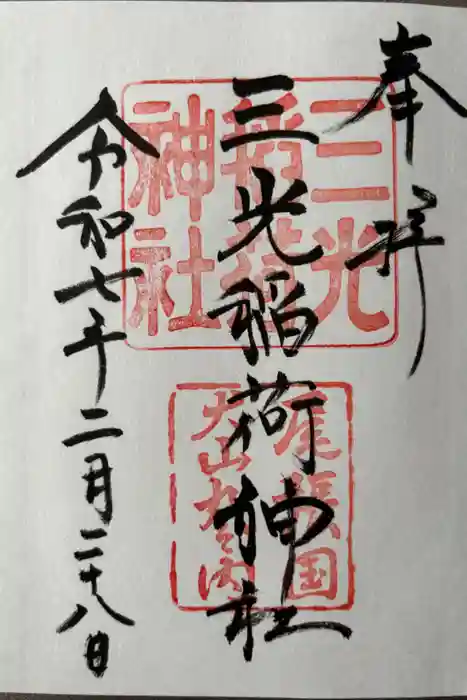 奉拝
三光稲荷神社
令和七年二月二十八日
三光
稲荷
神社
尾張国
犬山丸之内